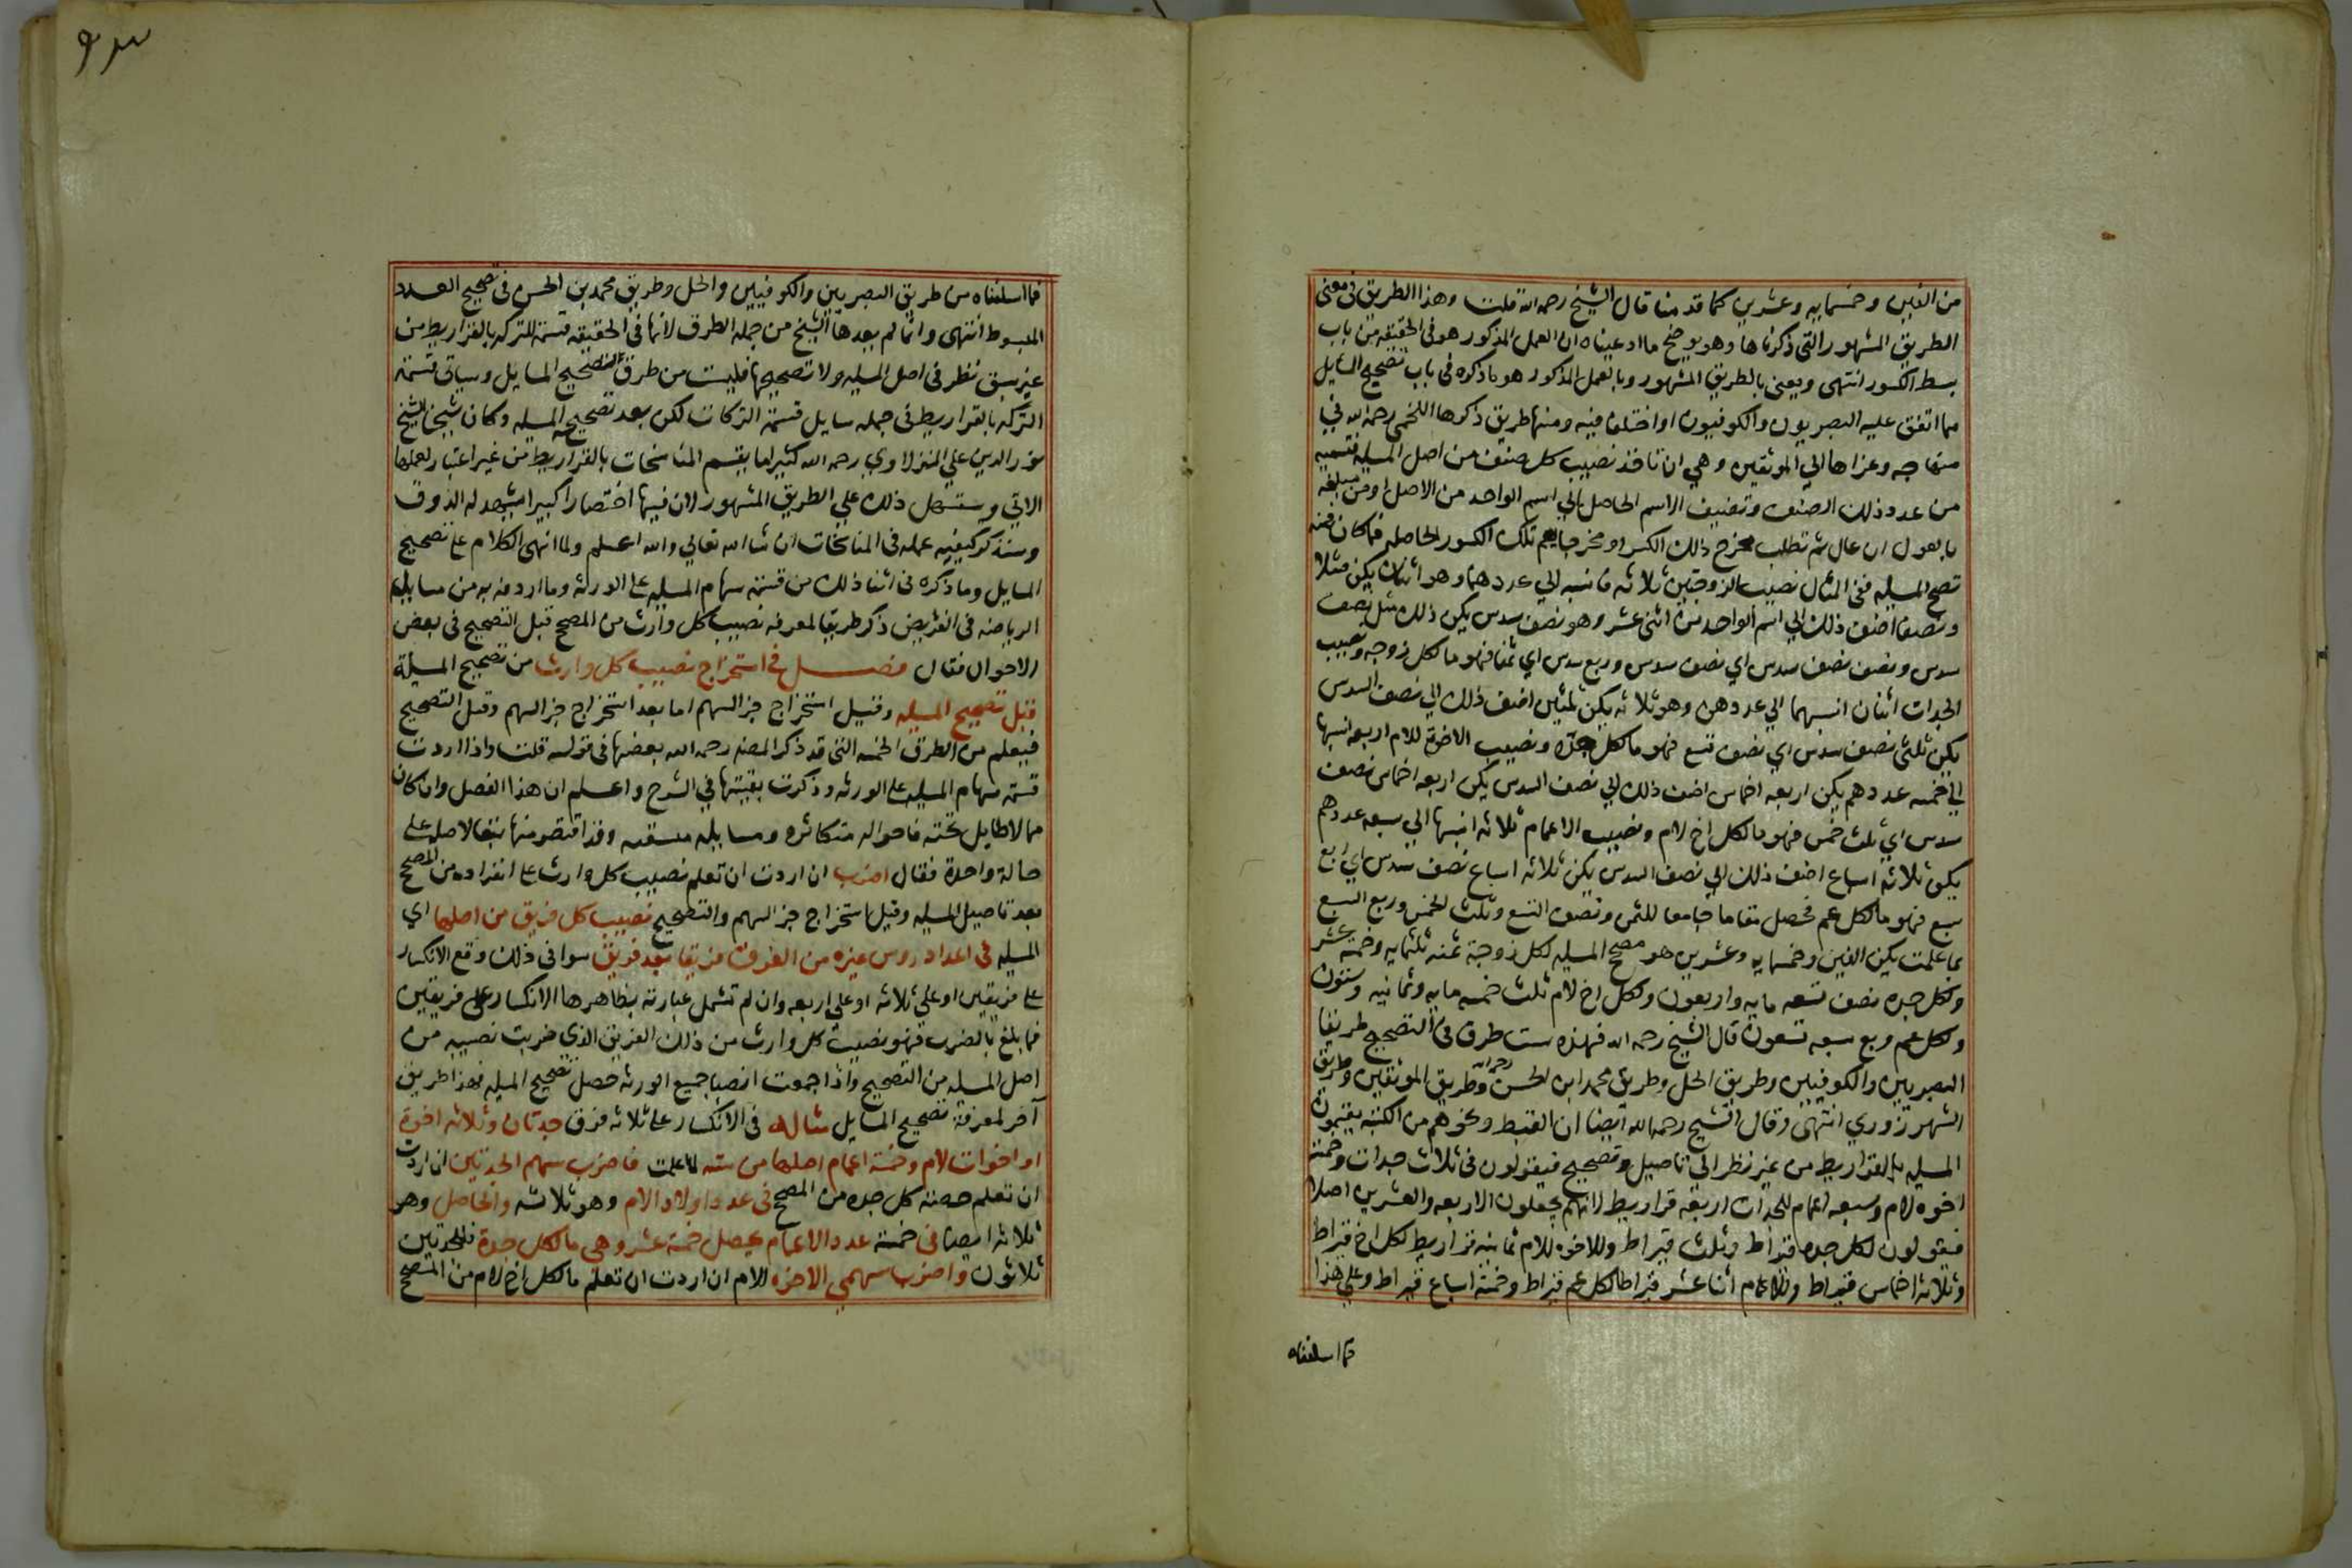 من الفين وخمسمايه وعشرين كما قدمنا قال الشيخ رحمه الله قلت وهذا الطريق في معنى
الطريق المشهور التي ذكرناها وهو يوضح ما ادعيناه ان العمل المذكور هو في الحقيقه من باب
بسط الكسور انتهى ويعنى بالطريق المشهور وبالعمل المذكور هو ما ذكره في باب تصحيح المسايل
مما اتفق عليه البصريون والكوفيون او اختلف فيه ومنها طريق ذكرها اللخمى رحمه الله في
وعزاها الي الموثقين وهي ان تاخذ نصيب كل صنف من اصل المسيله فتسميه
من عدد ذلك الصنف وتضيف الاسم الحاصل الي اسم الواحد من الاصل او من مبلغه
بالعول ان عال ثم تطلب مخرج ذلك الكسر او مخرجا يعم تلك الكسور الحاصله فما كان فمنه
تصح المسيله ففي المثال نصيب الزوجتين ثلاثه فانسبه الي عددهما وهو اثنان يكن مثلا
ونصفا اضف ذلك الي اسم الواحد من اثنى عشر وهو نصف سدس يكن ذلك مثل نصف
سدس ونصف نصف سدس اي نصف سدس وربع سدس اي ثمنا فهو ما لكل زوجه ونصيب
الجدات اثنان انسبهما الي عددهن وهو ثلاثه يكن ثلثين اضف ذلك الي نصف السدس
يكن ثلثى نصف سدس اي نصف تسع فهو ما لكل جدة ونصيب الاخوة للام اربعه انسبها
الي خمسه عددهم يكن اربعه اخماس اضف ذلك الي نصف السدس يكن اربعه اخماس نصف
سدس اي ثلث خمس فهو ما لكل اخ لام ونصيب الاعمام ثلاثه انسبها الي سبعه عددهم
يكن ثلاثه اسباع اضف ذلك الي نصف السدس يكن ثلاثه اسباع نصف سدس اي ربع
سبع فهو ما لكل عم فحصل مقاما جامعا للثمن ونصف التسع وثلث الخمس وربع السبع
بما علمت يكن الفين وخمسمايه وعشرين هو مصحح المسيله لكل زوجة ثمنه ثلثمايه وخمسة عشر
ولكل جده نصف تسعه مايه واربعون ولكل اخ لام ثلث خمسه مايه وثمانيه وستون
ولكل عم ربع سبعه تسعون قال الشيخ رحمه الله فهذه ست طرق في التصحيح طريقا
البصريين والكوفيين وطريق الحل وطريق محمد ابن الحسن رحمه الله وطريق الموثقين وطريق
الشهرزوري انتهى وقال الشيخ رحمه الله ايضا ان القبط ونحوهم من الكتبه يقسمون
المسيله بالقراريط من غير نظر الي تاصيل وتصحيح فيقولون في ثلاث جدات وخمسة
اخوه لام وسبعه اعمام للجدات اربعة قراريط لانهم يجعلون الاربعه والعشرين اصلا
فيقولون لكل جده قيراط وثلث قيراط وللاخوه للام ثمانيه قراريط لكل اخ قيراط
وثلاثه اخماس قيراط وللاعمام اثنا عشر قيراطا لكل عم قيراط وخمسة اسباع قيراط وعلي هذا
فما اسلفناه
فما اسلفناه من طريق البصريين والكوفيين والحل وطريق محمد بن الحسن في تصحيح العدد
المبسوط انتهى وانما لم يعدها الشيخ من جمله الطرق لانها في الحقيقه قسمة للتركه بالقراريط من
غير سبق نظر في اصل المسيله ولا تصحيحها فليست من طرق التصحيح المسايل وسياتى قسمة
التركه بالقراريط في جمله مسايل قسمة التركات لكن بعد تصحيح المسيله وكان شيخنا الشيخ
نور الدين علي المنزلاوي رحمه الله كثيرا ما يقسم المناسخات بالقراريط من غير اعتبار لعملها
الاتي ويستسهل ذلك علي الطريق المشهور لان فيها اختصارا كبيرا يشهد له الذوق
وسنذكر كيفيه عمله في المناسخات ان شا الله تعالي والله اعلم ولما انهى الكلام على تصحيح
المسايل وما ذكره في اثنا ذلك من قسمة سهام المسيله على الورثه وما اردفه به من مسايل
الرياضه في الفرايض ذكر طريقا لمعرفه نصيب كل وارث من المصحح قبل التصحيح في بعض
الاحوال فقال فصل في استخراج نصيب كل وارث من تصحيح المسيلة
قبل تصحيح المسيله وقبل استخراج جز السهم اما بعد استخراج جز السهم وقبل التصحيح
فيعلم من الطرق الخمسه التى قد ذكر المصنف رحمه الله بعضها في قوله قلت واذا اردت
قسمة سهام المسيله على الورثه وذكرت بقيتها في الشرح واعلم ان هذا الفصل وان كان
مما لا طايل تحته فاحواله متكاثره ومسايله وقد اقتصر منها تبعا لاصله على
حالة واحدة فقال اضرب ان اردت ان تعلم نصيب كل وارث على انفراده من المصحح
بعد تاصيل المسيله وقبل استخراج جز السهم والتصحيح نصيب كل فريق من اصلها اي
المسيله في اعداد روس غيره من الفرق فريقا بعد فريق سوا في ذلك وقع الانكسار
على فريقين او علي ثلاثه او علي اربعه وان لم تشمل عبارته بظاهرها الانكسار على فريقين
فما بلغ بالضرب فهو نصيب كل وارث من ذلك الفريق الذي ضربت نصيبه من
اصل المسيله من التصحيح واذا جمعت انصبا جميع الورثه حصل تصحيح المسيله فهذا طريق
آخر لمعرفة تصحيح المسايل مثاله في الانكسار على ثلاثه فرق جدتان وثلاثه اخوة
او اخوات لام وخمسة اعمام اصلها من سته لما علمت فاضرب سهم الجدتين ان اردت
ان تعلم حصة كل جده من المصحح في عدد اولاد الام وهو ثلاثه والحاصل وهو
ثلاثه ايضا في خمسة عدد الاعمام يحصل خمسة عشر وهي ما لكل جدة فللجدتين
ثلاثون واضرب سهمي الاخوه للام ان اردت ان تعلم ما لكل اخ لام من المصحح